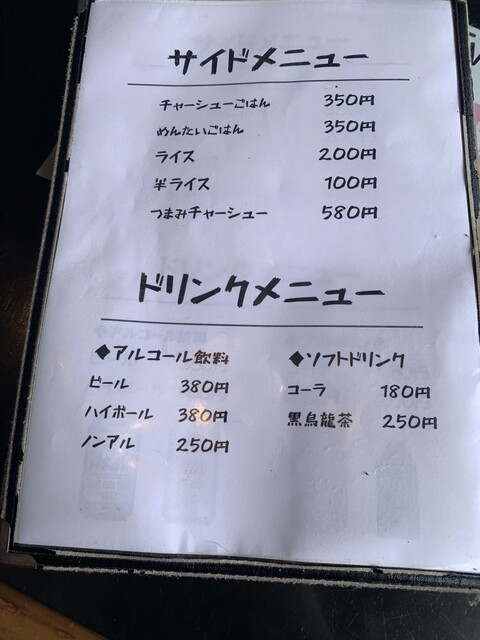 サイドメニュー
チャーシューごはん 350円
めんたいごはん 350円
ライス 200円
半ライス 100円
つまみチャーシュー 580円
ドリンクメニュー
◆アルコール飲料
ビール 380円
ハイボール 380円
ノンアル 250円
◆ソフトドリンク
コーラ 180円
黒烏龍茶 250円